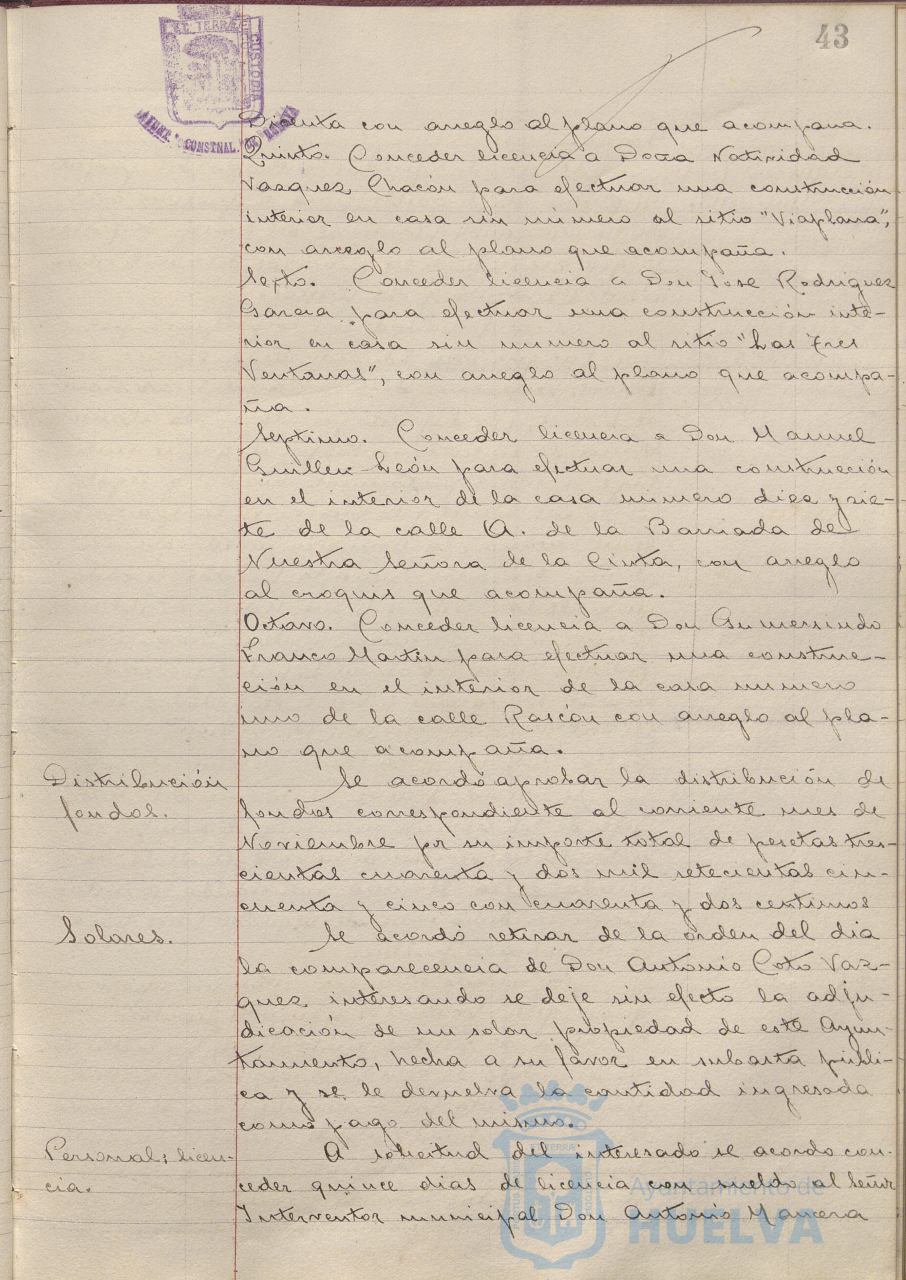 43
Dicenta con arreglo al plano que acompaña.
Quinto. Conceder licencia a Doña Natividad
Vazquez Chacón para efectuar una construcción
interior en casa sin número al sitio "Viaplana",
con arreglo al plano que acompaña.
Septo. Conceder licencia a Don Jose Rodriguez
Garcia para efectuar una construcción inte-
rior en casa sin numero al sitio "Las Tres
Ventanas", con arreglo al plano que acompa-
ña.
Septimo. Conceder licencia a Don Manuel
Guillen León para efectuar una construcción
en el interior de la casa número diez y sie-
te de la calle A. de la Barriada de
Nuestra Señora de la Cinta, con arreglo
al croquis que acompaña.
Octavo. Conceder licencia a Don Gumersindo
Franco Martin para efectuar una construc-
ción en el interior de la casa numero
uno de la calle Rascón con arreglo al pla-
no que acompaña.
Distribución
fondos.
Se acordó aprobar la distribución de
fondos correspondiente al corriente mes de
Noviembre por su importe total de pesetas tres-
cientas cuarenta y dos mil setecientas cin-
cuenta y cinco con cuarenta y dos centimos
Solares.
Se acordó retirar de la orden del dia
la comparecencia de Don Antonio Coto Vaz-
quez interesando se deje sin efecto la adju-
dicación de un solar propiedad de este Ayun-
tamiento, hecha a su favor en subasta públi-
ca y se le devuelva la cantidad ingresada
como pago del mismo.
Personal; licen-
cia.
A solicitud del interesado se acordo con-
ceder quince dias de licencia con sueldo al Señor
Interventor municipal Don Antonio Mancera
Ayuntamiento de
HUELVA